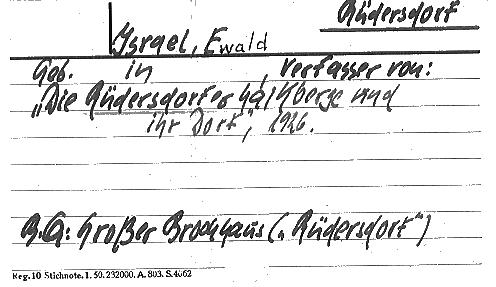 Rüdersdorf
Israel, Ewald
Geb. in , Verfasser von:
„Die Rüdersdorfer Kalkberge und
ihr Dorf", 1926.
B.Q: Großer Brockhaus („Rüdersdorf")
Reg. 10 Stichnote. 1. 50. 232000. A. 803. S. 4062